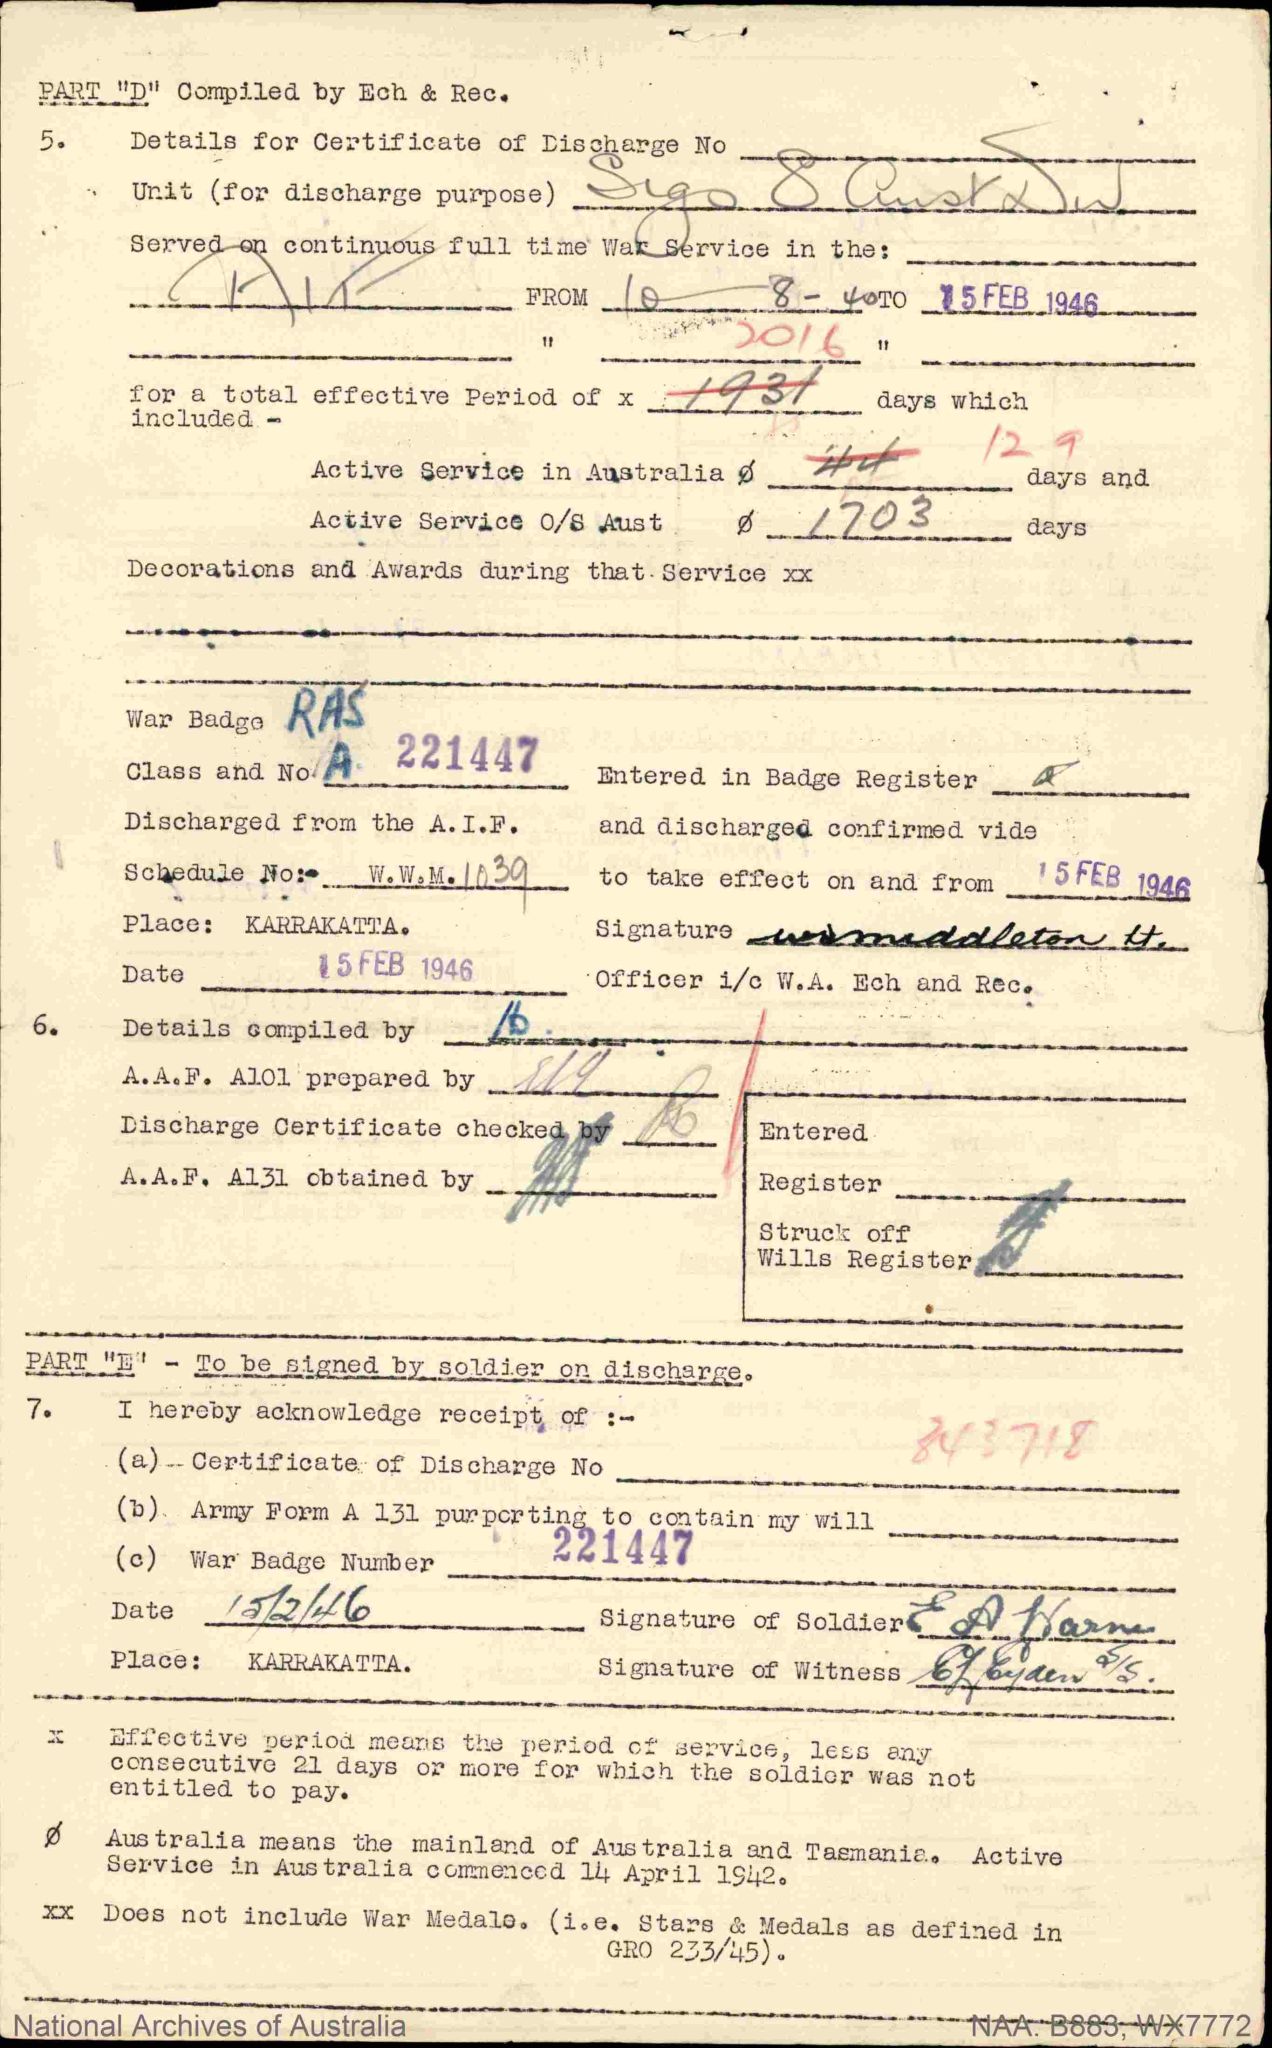 PART "D" Compiled by Ech & Rec.
5. Details for Certificate of Discharge No
Unit (for discharge purpose) Sigs 8 Aust Div
Served on continuous full time War Service in the:
AIF FROM 10-8-40 TO 15 FEB 1946
" 2016 "
for a total effective Period of x 1931 days which
included -
12 9
Active Service in Australia ø 44 days and
Active Service O/S Aust ø 1703 days
Decorations and Awards during that Service xx
War Badge RAS
Class and No A. 221447 Entered in Badge Register
Discharged from the A.I.F. and discharged confirmed vide
Schedule No:- W.W.M. 1039 to take effect on and from 15 FEB 1946
Place: KARRAKATTA. Signature middleton Lt.
Date 15 FEB 1946 Officer i/c W.A. Ech and Rec.
6. Details compiled by
A.A.F. A101 prepared by
Discharge Certificate checked by
A.A.F. A131 obtained by
Entered
Register
Struck off
Wills Register
PART "E" - To be signed by soldier on discharge.
7. I hereby acknowledge receipt of :-
843718
(a) Certificate of Discharge No
(b). Army Form A 131 purporting to contain my will
(c) War Badge Number 221447
Date 15/2/46 Signature of Soldier E A
Place: KARRAKATTA. Signature of Witness S/S.
x Effective period means the period of service, less any
consecutive 21 days or more for which the soldier was not
entitled to pay.
ø Australia means the mainland of Australia and Tasmania. Active
Service in Australia commenced 14 April 1942.
xx Does not include War Medals. (i.e. Stars & Medals as defined in
GRO 233/45).
National Archives of Australia NAA: B883, WX7772